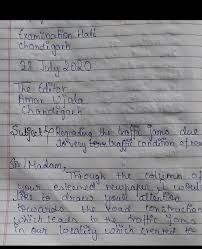 Examination Hall
Chandigarh
28 July 2020
The Editor
Aman Ujala
Chandigarh
Subject:- Regarding the traffic jams due
to very traffic condition of
Sir/Madam,
Through the column of
your esteemed newspaper I would
like to draw your attention
towards the road construction
which leads to the traffic jams
in our locality which created the